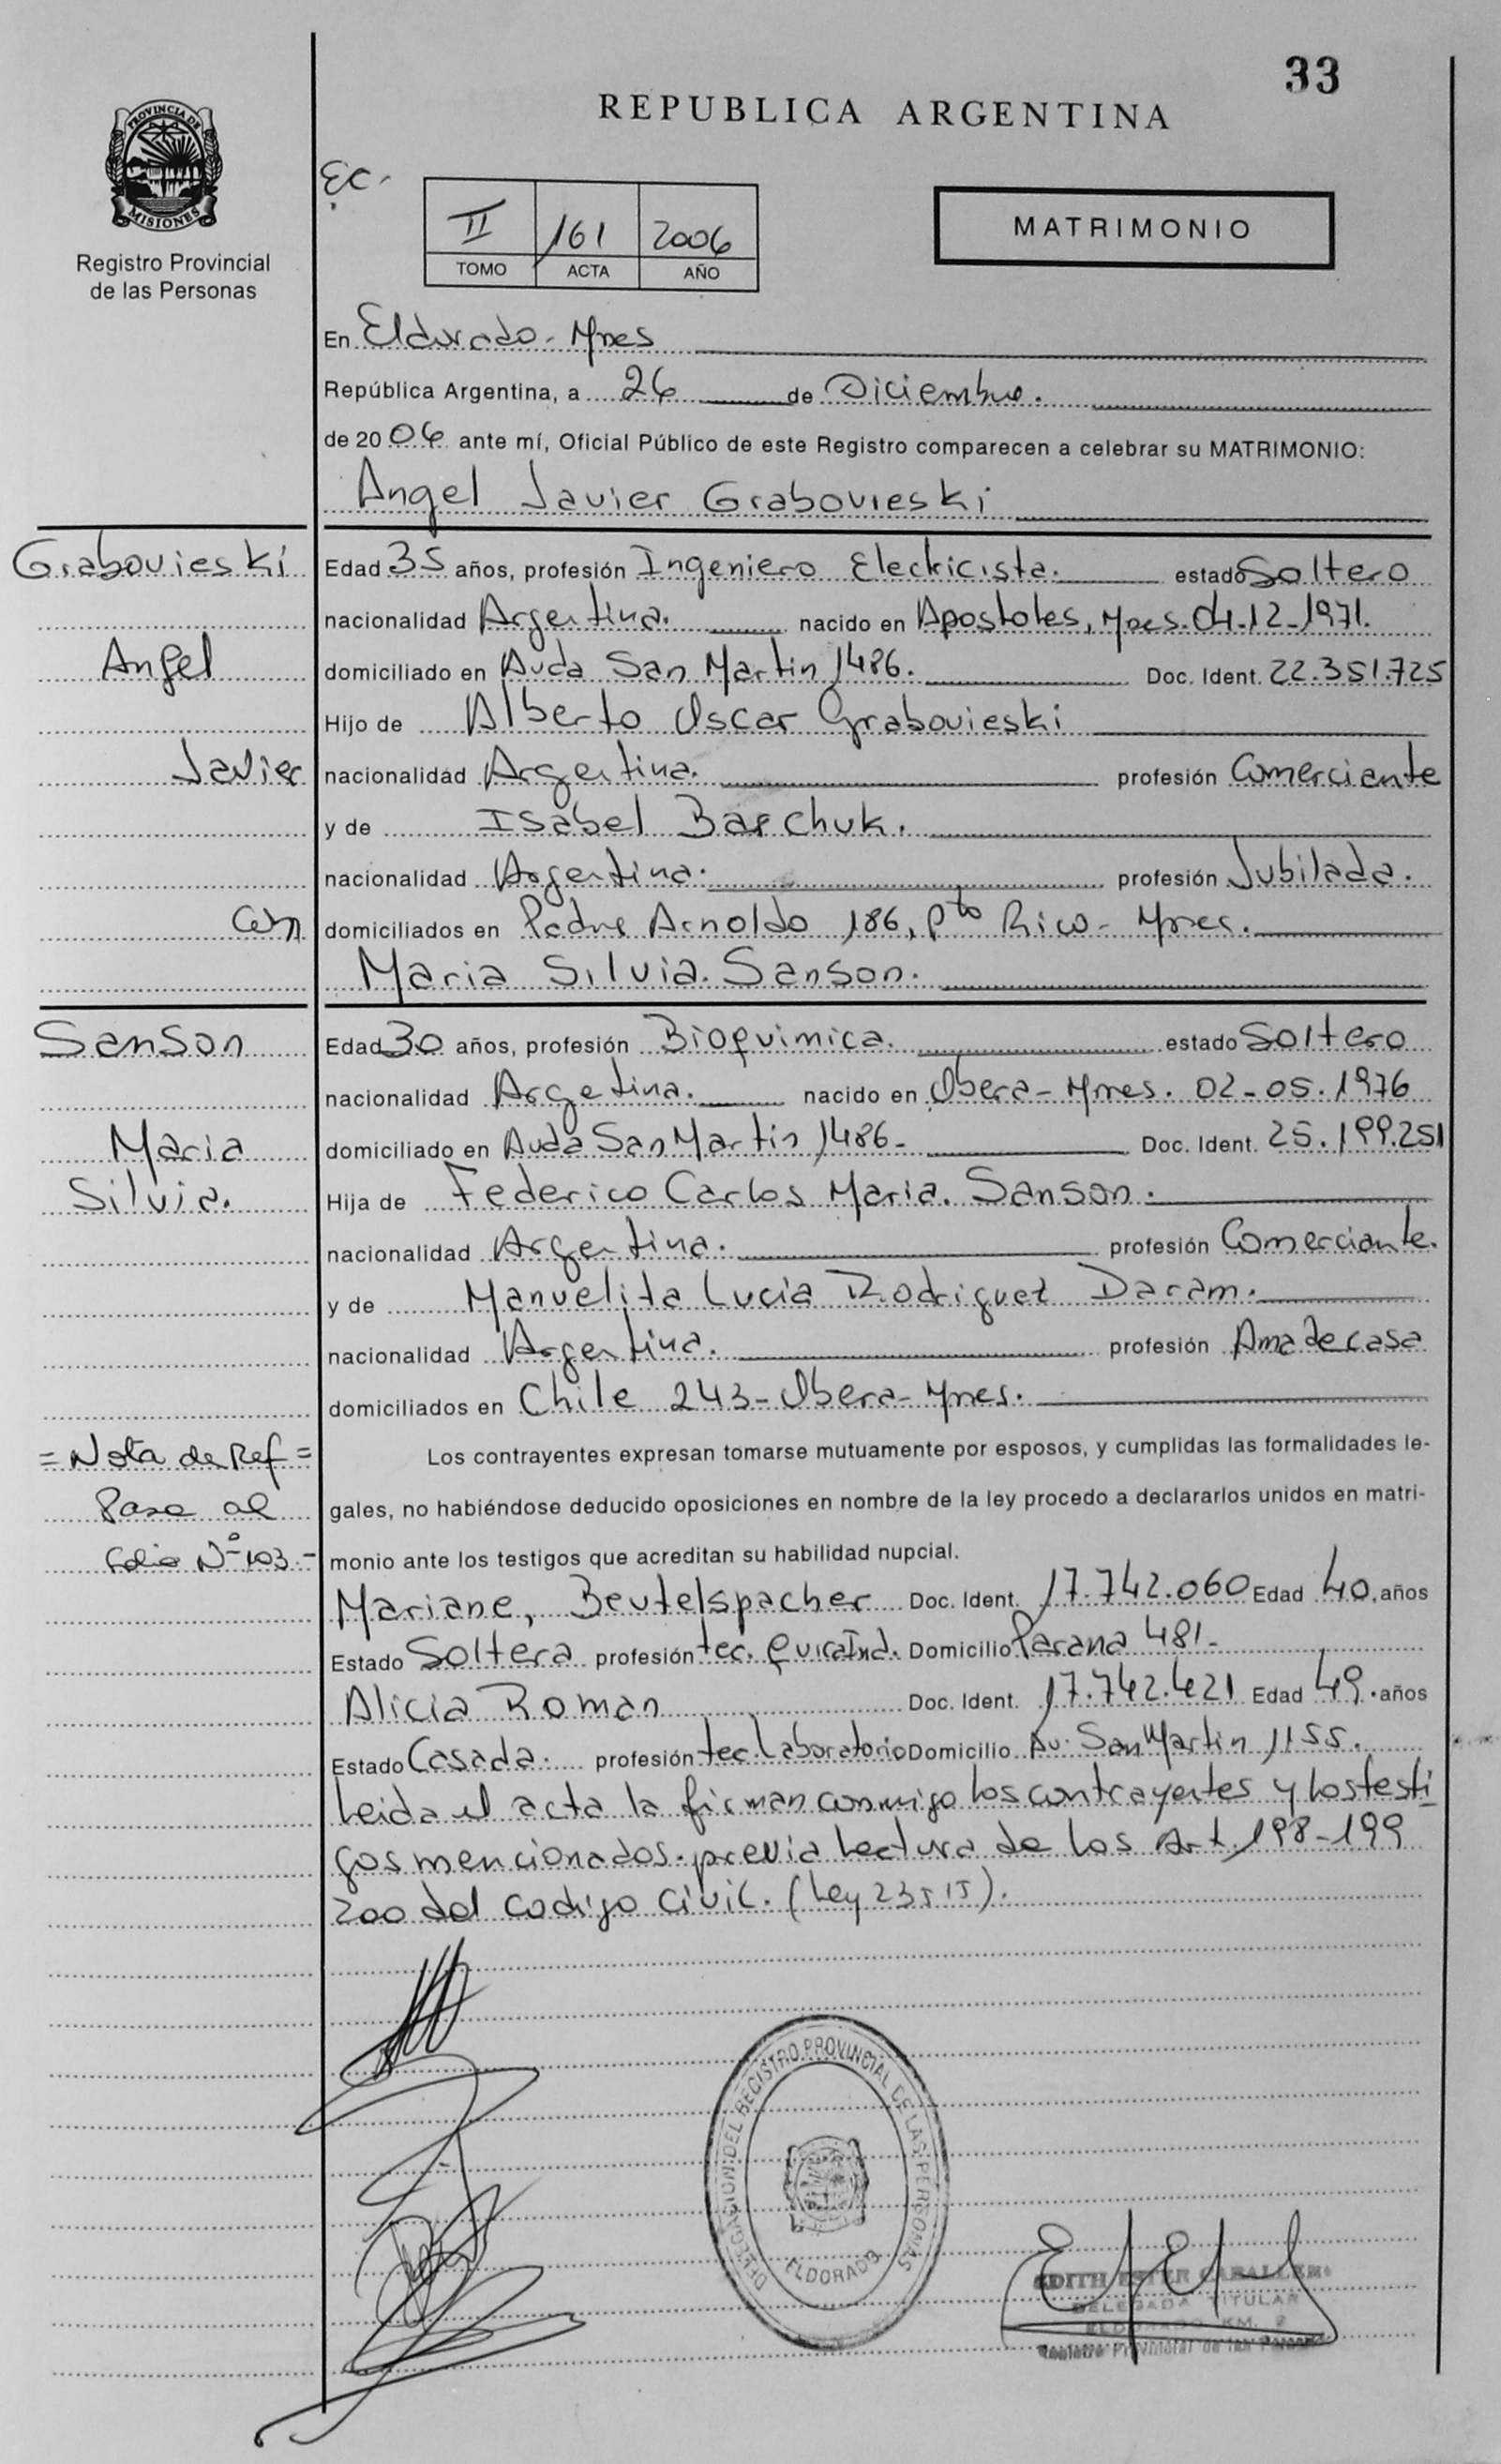 33
REPUBLICA ARGENTINA
PROVINCIA DE
MISIONES
Registro Provincial
de las Personas
EC.
II 161 2006
TOMO ACTA AÑO
MATRIMONIO
En Eldorado - Mnes
República Argentina, a 26 de Diciembre.
de 2006 ante mí, Oficial Público de este Registro comparecen a celebrar su MATRIMONIO:
Angel Javier Grabovieski
Grabovieski
Angel
Javier
Con
Edad 35 años, profesión Ingeniero Electricista. estado Soltero
nacionalidad Argentina. nacido en Apostoles, Mnes. 04.12.1971.
domiciliado en Avda San Martin 1486. Doc. Ident. 22.351.725
Hijo de Alberto Oscar Grabovieski
nacionalidad Argentina. profesión Comerciante
y de Isabel Barchuk.
nacionalidad Argentina. profesión Jubilada.
domiciliados en Padre Arnoldo 186, Pto Rico - Mnes.
Maria Silvia Sanson.
Sanson
Maria
Silvia.
Edad 30 años, profesión Bioquimica. estado Soltero
nacionalidad Argetina. nacido en Obera - Mnes. 02-05.1976
domiciliado en Avda San Martin 1486- Doc. Ident. 25.199.251
Hija de Federico Carlos Maria. Sanson.
nacionalidad Argentina. profesión Comerciante.
y de Manuelita Lucia Rodriguez Daram.
nacionalidad Argentina. profesión Ama de casa
domiciliados en Chile 243- Obera - Mnes.
= Nota de Ref =
Pasa al
folio Nº 103.-
Los contrayentes expresan tomarse mutuamente por esposos, y cumplidas las formalidades le-
gales, no habiéndose deducido oposiciones en nombre de la ley procedo a declararlos unidos en matri-
monio ante los testigos que acreditan su habilidad nupcial.
Mariane, Beutelspacher Doc. Ident. 17.742.060 Edad 40 años
Estado Soltera profesión tec. Domicilio Parana 481-
Alicia Roman Doc. Ident. 17.742.421 Edad 49. años
Estado Casada. profesión tec. Laboratorio Domicilio Av. San Martin 1155.
Leida el acta la firman conmigo los contrayentes y los testi
gos mencionados. previa lectura de los Art. 198-199
200 del codigo civil. (Ley 23515).
DELEGACION DEL REGISTRO PROVINCIAL DE LAS PERSONAS
ELDORADO
EDITH ESTER CABALLERO
DELEGADA TITULAR
ELDORADO KM. 2
Registro Provincial de las Personas